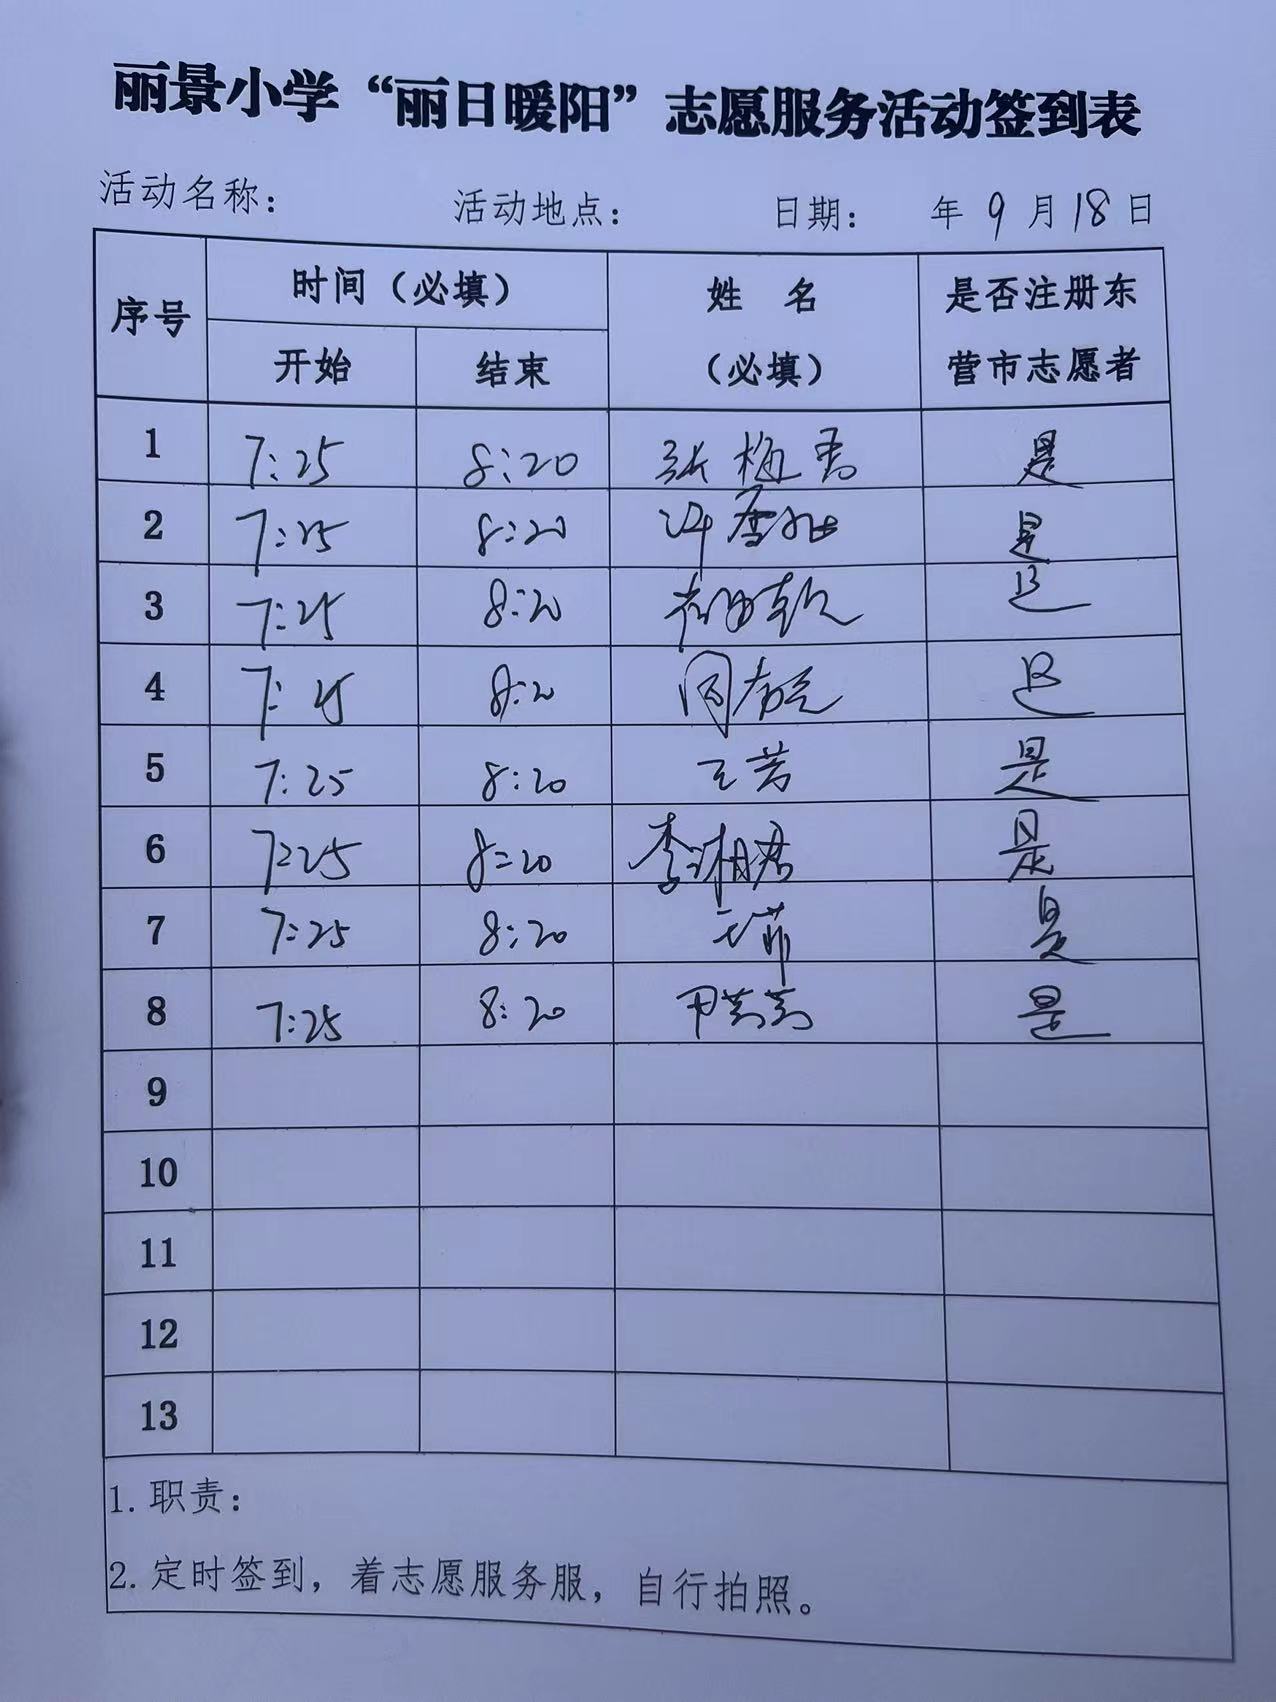 丽景小学“丽日暖阳”志愿服务活动签到表
活动名称： 活动地点： 日期： 年 9 月 18 日
序号 时间（必填） 姓 名（必填） 是否注册东营市志愿者
开始 结束
1 7:25 8:20 张梅香 是
2 7:25 8:20 许雪 是
3 7:25 8:20 是
4 7:25 8:20 是
5 7:25 8:20 王芳 是
6 7:25 8:20 李湘君 是
7 7:25 8:20 王菲 是
8 7:25 8:20 尹 是
9
10
11
12
13
1. 职责：
2. 定时签到，着志愿服务服，自行拍照。